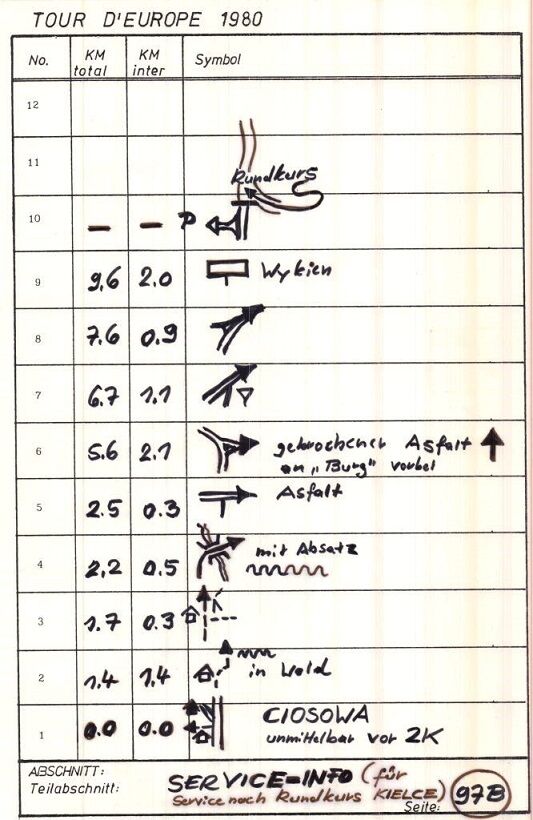 TOUR D'EUROPE 1980
No. KM total KM inter Symbol
12
11
Rundkurs
10 — — P
9 9,6 2.0 Wykien
8 7.6 0.9
7 6.7 1.1
6 5.6 2.1 gebrochener Asfalt
an "Burg" vorbei
5 2.5 0.3 Asfalt
4 2,2 0.5 mit Absatz
3 1.7 0.3
2 1,4 1,4 in Wald
1 0.0 0.0 CIOSOWA
unmittelbar vor 2K
ABSCHNITT: SERVICE=INFO (für
Teilabschnitt: Service nach Rundkurs KIELCE)
Seite: 97B